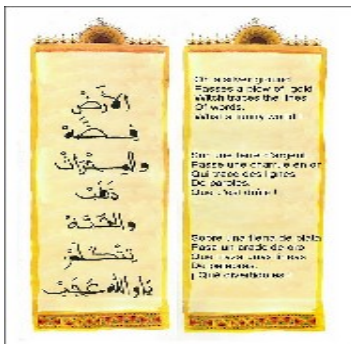 الأرض
فضة
والمحراث
ذهب
تتكلم
عجب
On a silver ground
Passes a plow of gold
Witch traces the lines
Of words.
What a funny world
Sur une terre d'argent
Passe une charrue en or
Qui trace des lignes
De paroles.
Que c'est drôle !
Sobre una tierra de plata
Pasa un arado de oro
Que traza unas líneas
De palabras.
¡ Qué divertido es !